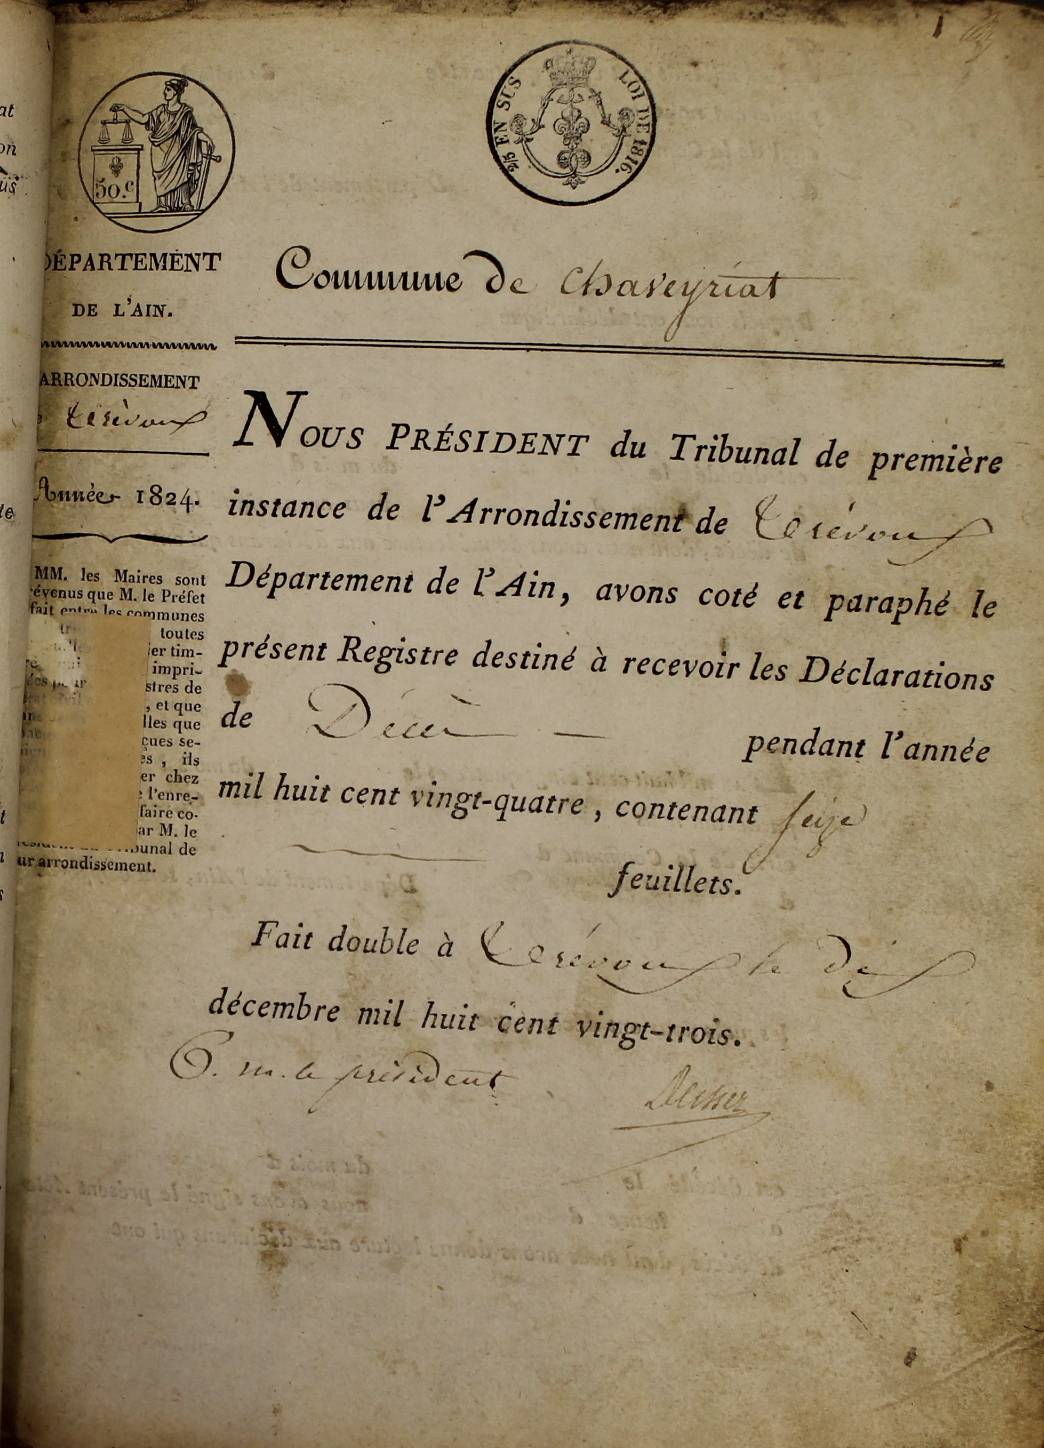 50.c
2/5 EN SUS
LOI DE 1816.
DÉPARTEMENT
DE L'AIN.
ARRONDISSEMENT
Trévoux
Année 1824.
MM. les Maires sont
révenus que M. le Préfet
fait entre les communes
toutes
ier tim-
impri-
stres de
, et que
lles que
çues se-
es, ils
er chez
l'enre-
faire co-
ar M. le
bunal de
ur arrondissement.
Commune de Chaveyriat
NOUS PRÉSIDENT du Tribunal de première
instance de l'Arrondissement de Trévoux
Département de l'Ain, avons coté et paraphé le
présent Registre destiné à recevoir les Déclarations
de Décès pendant l'année
mil huit cent vingt-quatre, contenant seize
feuillets.
Fait double à Trévoux le dix
décembre mil huit cent vingt-trois.
P. m. le président